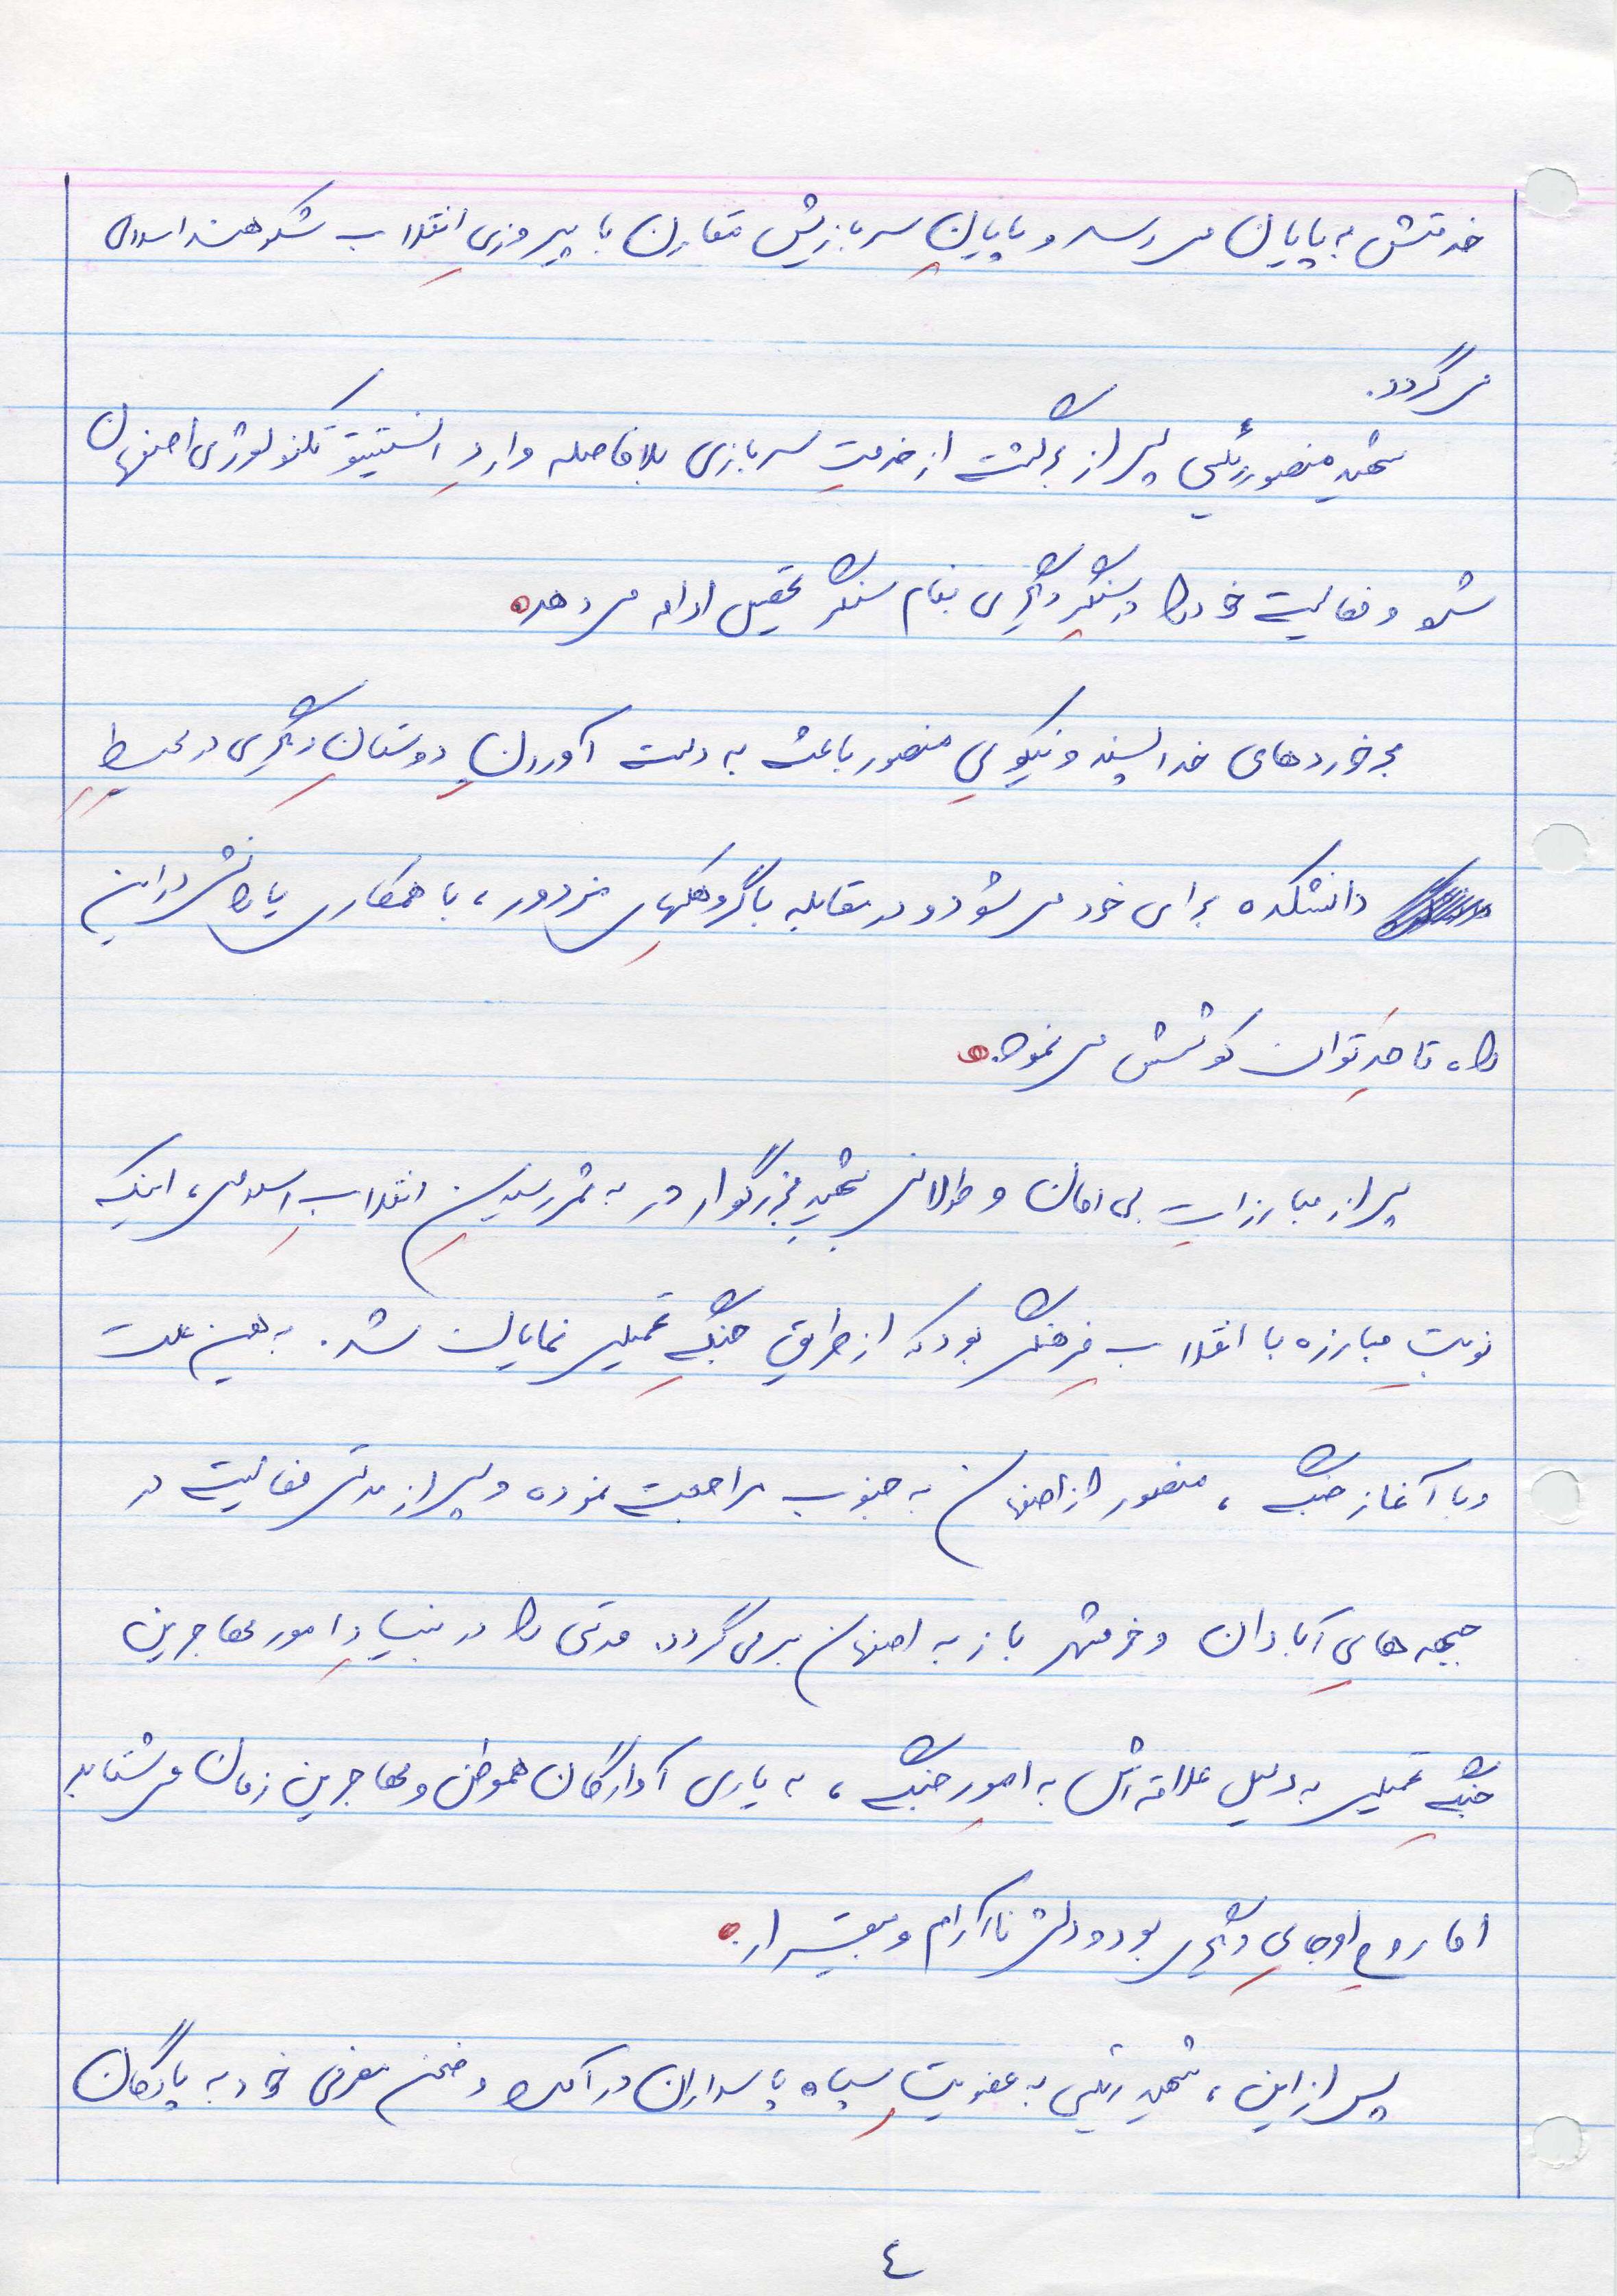 خدمتش به پایان می رسد و پایانِ سربازیش متقارن با پیروزی انقلابِ شکوهمند اسلامی
می گردد.
شهید منصور رئیسی پس از برگشت از خدمتِ سربازی بلافاصله واردِ انستیتو تکنولوژی اصفهان
شد و فعالیت خود را در سنگرِ دیگری بنام سنگر تحصیل ادامه می دهد.
برخوردهای خداپسند و نیکویِ منصور باعث به دست آوردنِ دوستانِ دیگری در محیطِ
دانشکده برای خود می شود و در مقابله با گروهکهایِ مزدور، با همکاری یارانش در این
راه تا حدِ توان کوشش می نمود.
پس از مبارزاتِ بی امان و طولانی شهیدِ بزرگوار در به ثمر رسیدنِ انقلابِ اسلامی، اینک
نوبتِ مبارزه با انقلابِ فرهنگی بود که از طریق جنگِ تحمیلی نمایان شد. به همین علت
و با آغاز جنگ، منصور از اصفهان به جنوب مراجعت نموده و پس از مدتی فعالیت در
جبهه هایِ آبادان و خرمشهر باز به اصفهان برمی گردد. مدتی را در بنیادِ امور مهاجرین
جنگِ تحمیلی به دلیل علاقه اش به امورِ جنگ، به یاری آوارگان هموطن و مهاجرین زمان می شتابد
اما روحِ او جایِ دیگری بود و دلش ناآرام و بیقرار.
پس از این، شهید رئیسی به عضویتِ سپاه پاسداران درآمد و ضمن معرفی خود به پادگان
٤